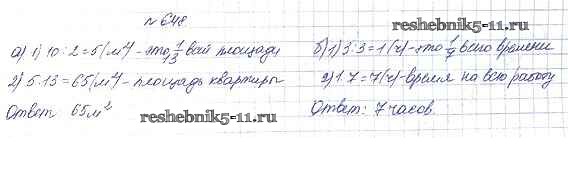 №648
reshebnik5-11.ru
а) 1) 10 : 2 = 5 (м²) - это 1/13 всей площади
2) 5·13 = 65 (м²) - площадь квартиры
Ответ: 65 м²
б) 1) 3:3 = 1 (ч) - это 1/7 всего времени
2) 1·7 = 7 (ч) - время на всю работу
Ответ: 7 часов.
reshebnik5-11.ru